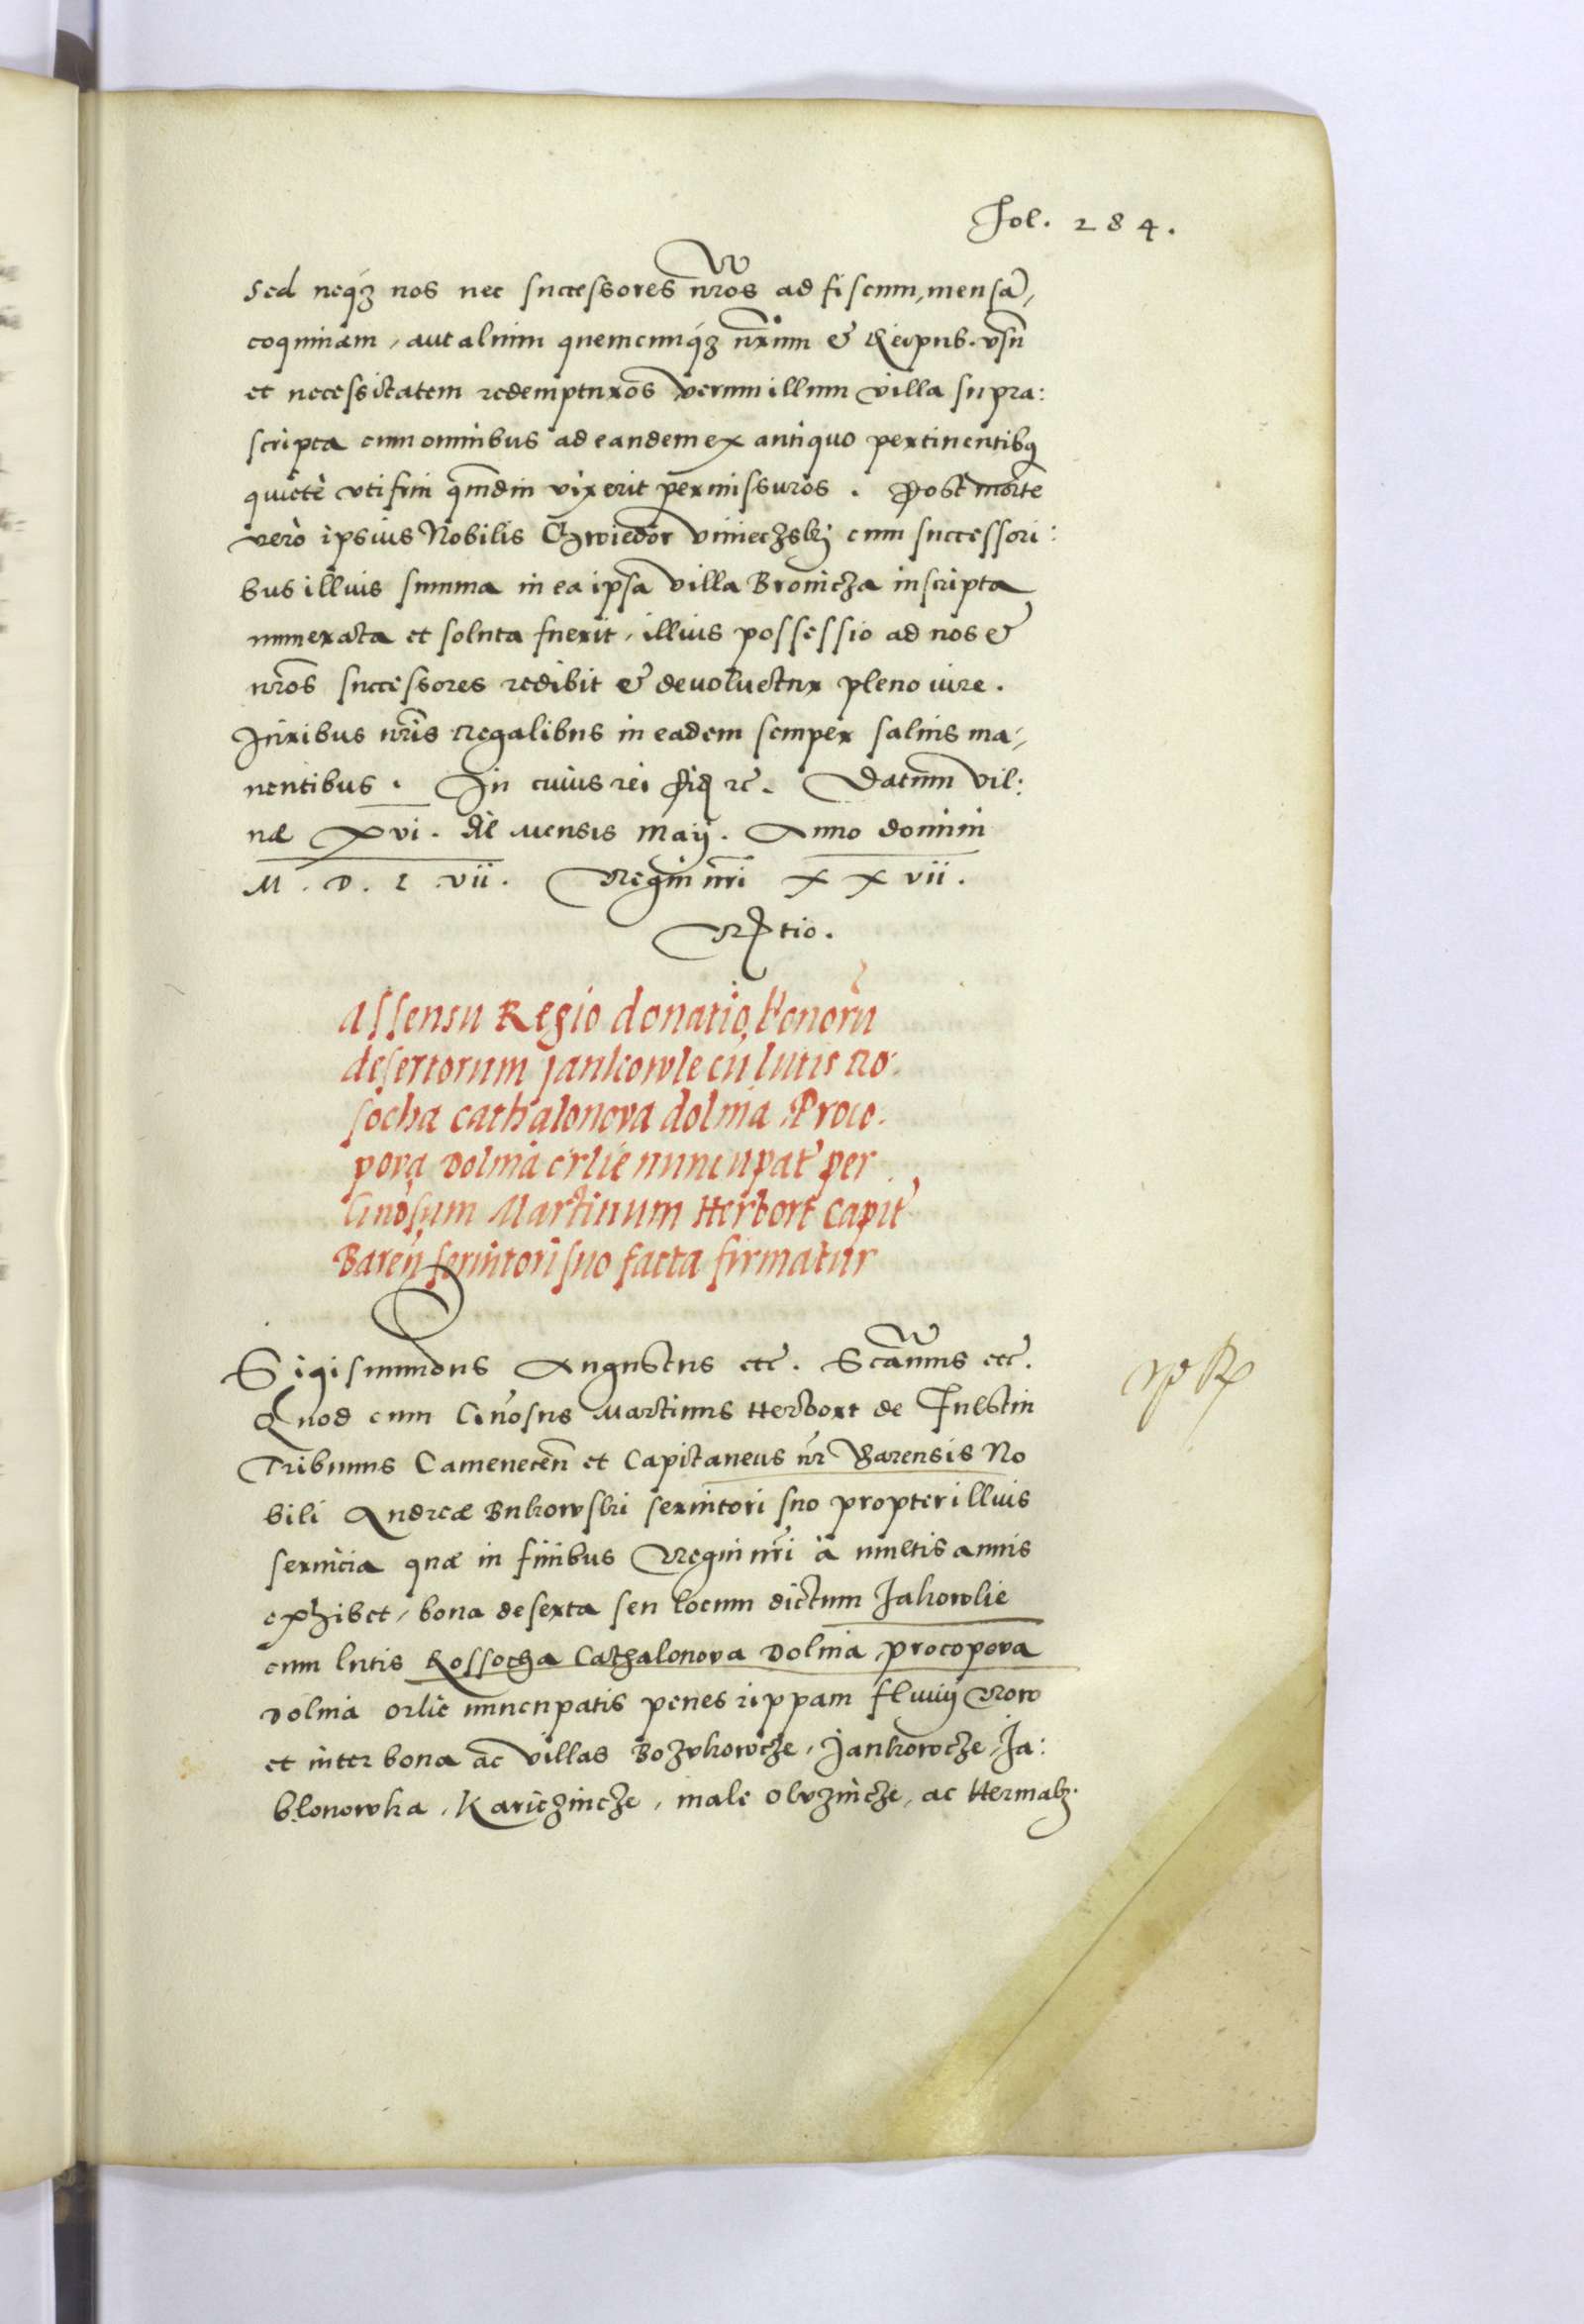 Fol. 284.
Sed neqz nos nec successores nros ad fiscum, mensã,
coquinam, aut alium quemcunqz nrum & Reipub. vsũ
et necessitatem redempturos verum illum villa supra:
scripta cum omnibus ad eandem ex antiquo pertinentibq
quietè vti frui qmdiu vixerit permissuros. Post morte
verò ipsius Nobilis Chwiedor Vinieczskj cum successori:
bus illius summa in ea ipsa villa Bronicza inscripta
numerata et soluta fuerit, illius possessio ad nos &
nros successores redibit & deuoluetur pleno iure.
Iuribus nris Regalibus in eadem semper saluis ma,
nentibus. In cuius rei fid rc. Datum Vil:
næ xvi. die mensis Maij. Anno domini
M. D. L vii. Regni nri xxvii.
Rtio.
Assensu Regio donatio bonorũ
desertorum Jankowle cũ lutis Ro:
socha cathalonova dolina Proco.
pova dolina orlie nuncupat per
Gnosum Martinum Herbort Capit
Bareñ seruitori suo facta firmatur
Sigismundus Augustus etc. Scanus etc.
Quod cum Gnosus Martinus Herbort de Fulstin
Tribunus Camenecen et Capitaneus nr Barensis No
bili Andreæ Bukowski seruitori suo propter illius
seruicia quæ in finibus Regni nri à multis annis
exhibet, bona deserta seu locum dictum Jakowlie
cum lutis Rossocha Cathalonova Dolina, procopova
Dolina orlie nuncupatis penes rippam fluuij Row
et inter bona ac villas Bozvkowcze, Jankowcze, Ja:
blonowka, Kariczincze, male olvzincze, ac Hermalz.